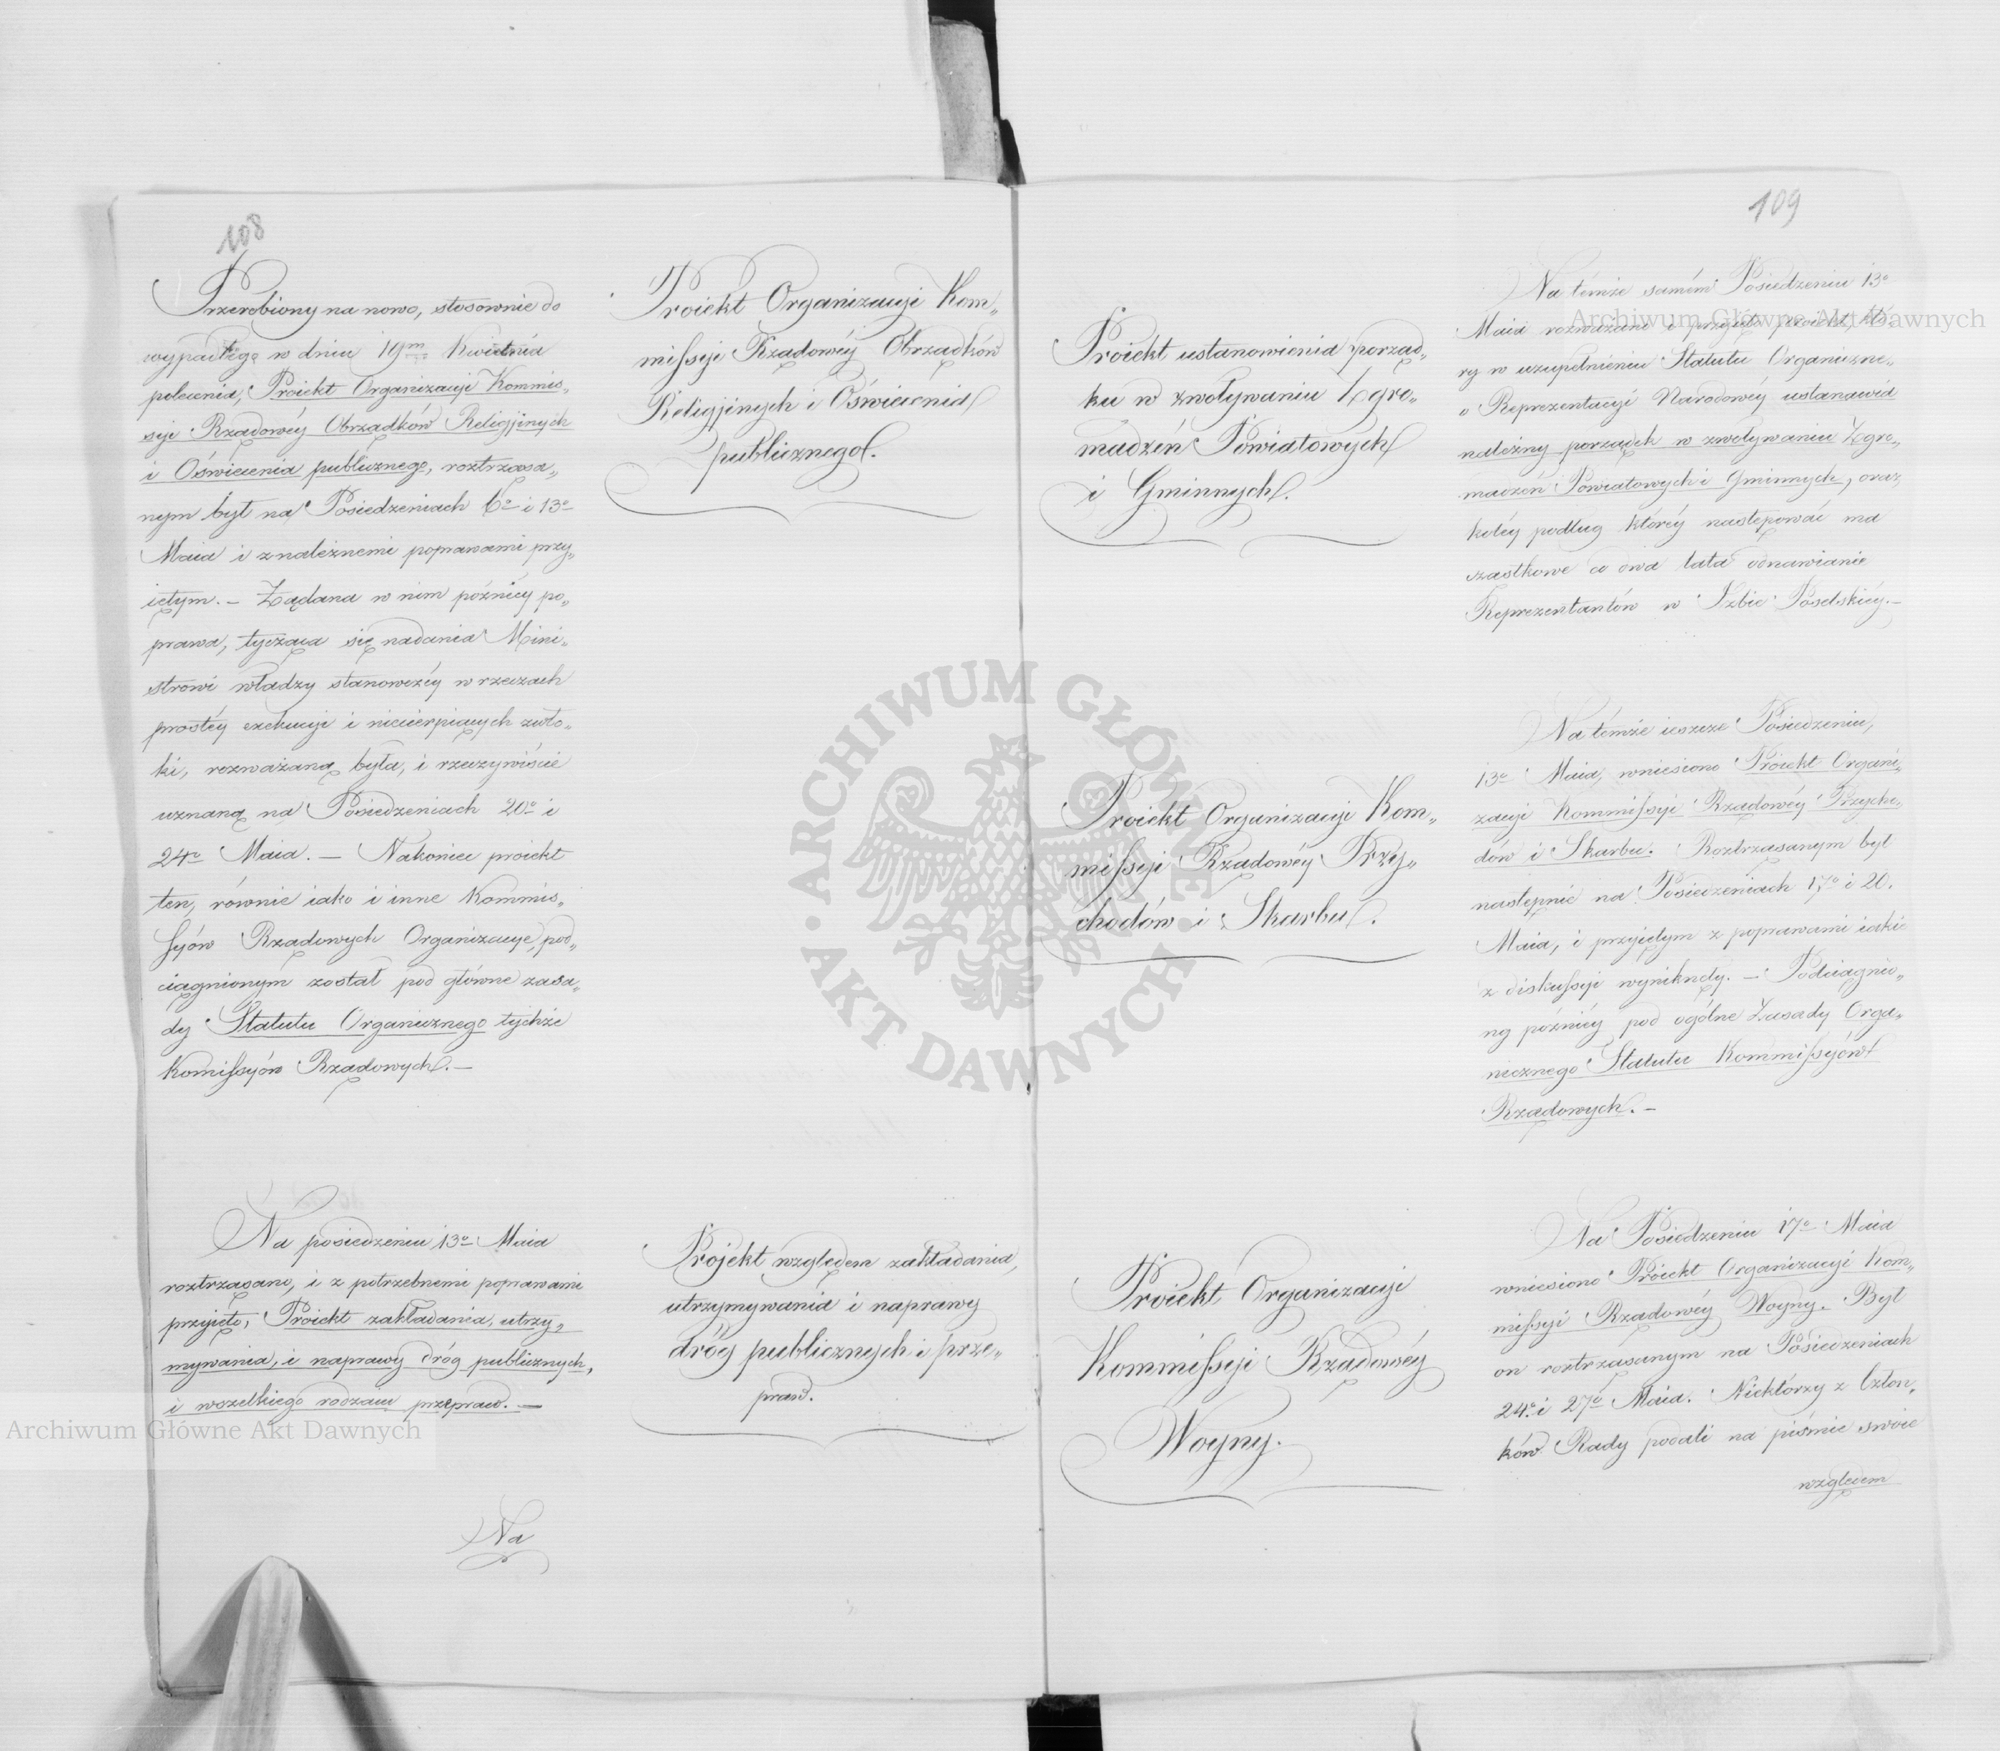 108
Przerobiony na nowo, stosownie do
wypadłego w dniu 19m Kwietnia
polecenia, Proiekt Organizacyi Kommis„
syi Rządowéy Obrządków Religijinych
i Oświecenia publicznego, roztrząsa„
nym był na Posiedzeniach 6o i 13o
Maia i z należnemi poprawami przy„
iętym. — Żądana w nim późniéy po„
prawa, tycząca się nadania Mini„
strowi władzy stanowczéy w rzeczach
prostéy exekucyi i niecierpiących zwło„
ki, rozważaną była, i rzeczywiście
uznaną na Posiedzeniach 20o i
24o Maia. — Nakoniec proiekt
ten, równie iako i inne Kommis„
syów Rządowych Organizacye, pod„
ciągnionym został pod główne zasa„
dy Statutu Organicznego tychże
Komissyów Rządowych. —
Na posiedzeniu 13o Maia
roztrząsano, i z potrzebnemi poprawami
przyięto, Proiekt zakładania, utrzy„
mywania, i naprawy dróg publicznych,
i wszelkiego rodzaiu przepraw. —
Na
Proiekt Organizacyi Kom„
missyi Rządowéy Obrządków
Religijinych i Oświecenia
publicznego.
Projekt względem zakładania,
utrzymywania i naprawy
dróg publicznych i prze„
praw.
109
Proiekt ustanowienia porząd„
ku w zwoływaniu Zgro„
madzeń Powiatowych
i Gminnych.
Proiekt Organizacyi Kom„
missyi Rządowéy Przy„
chodów i Skarbu.
Proiekt Organizacyi
Kommissyi Rządowéy
Woyny.
Na témże samém Posiedzeniu 13o
Maia rozważano i przyięto proiekt, któ„
ry w uzupełnieniu Statutu Organiczne„
o Reprezentacyi Narodowéy ustanawia
należny porządek w zwoływaniu Zgro„
madzeń Powiatowych i Gminnych, oraz
koléy podług któréy następować ma
cząstkowe co dwa lata odnawianie
Reprezentantów w Izbie Poselskiéy. —
Na témże ieszcze Posiedzeniu,
13o Maia, wniesiono Proiekt Organi„
zacyi Kommissyi Rządowéy Przycho„
dów i Skarbu. Roztrząsanym był
następnie na Posiedzeniach 17o i 20.
Maia, i przyiętym z poprawami iakie
z diskussyi wyniknęły. — Podciągnio„
ny późniéy pod ogólne Zasady Orga„
nicznego Statutu Kommissyów
Rządowych. —
Na Posiedzeniu 17o Maia
wniesiono Proiekt Organizacyi Kom„
missyi Rządowéy Woyny. Był
on roztrząsanym na Posiedzeniach
24o i 27o Maia. Niektórzy z Człon„
ków Rady podali na piśmie swoie
względem
Archiwum Główne Akt Dawnych
Archiwum Główne Akt Dawnych
ARCHIWUM GŁÓWNE AKT DAWNYCH